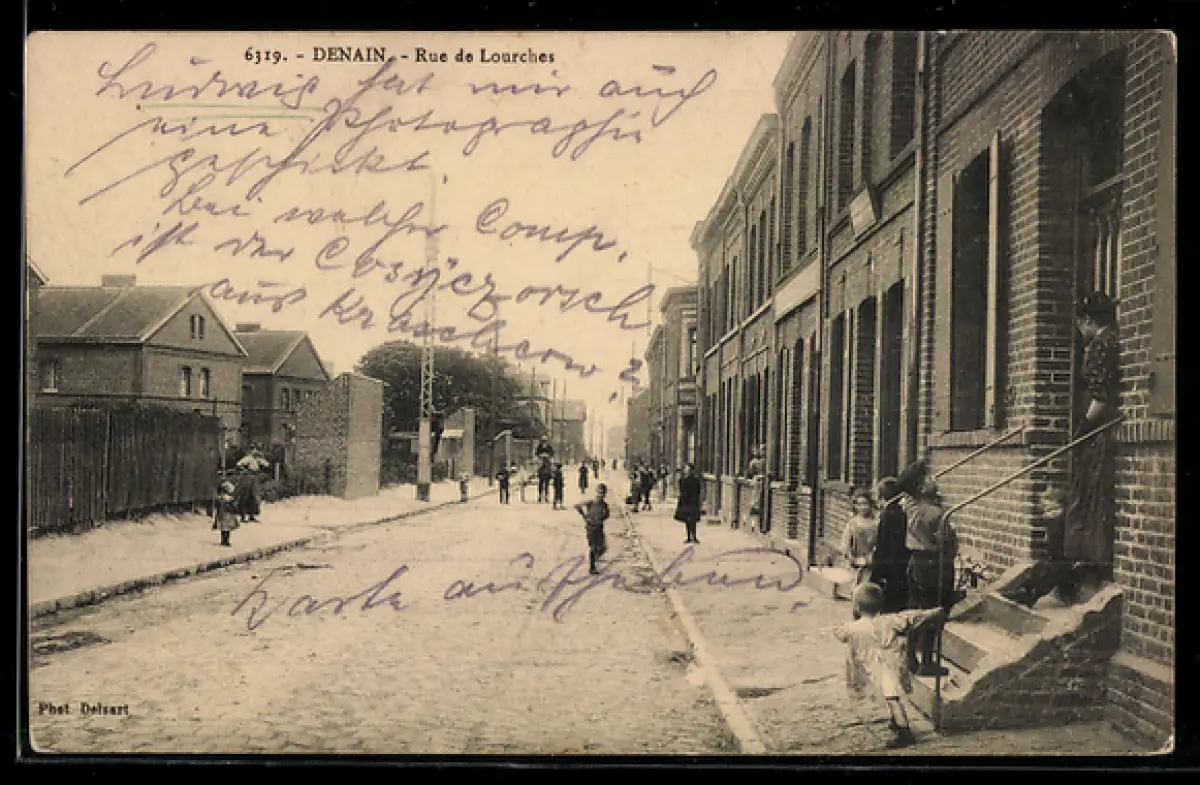 6319. - DENAIN. - Rue de Lourches
Ludwig hat mir auch
eine Photographie
geschickt.
Bei welcher Comp.
ist der
aus Kraschcow?
Karte
Phot Delsart